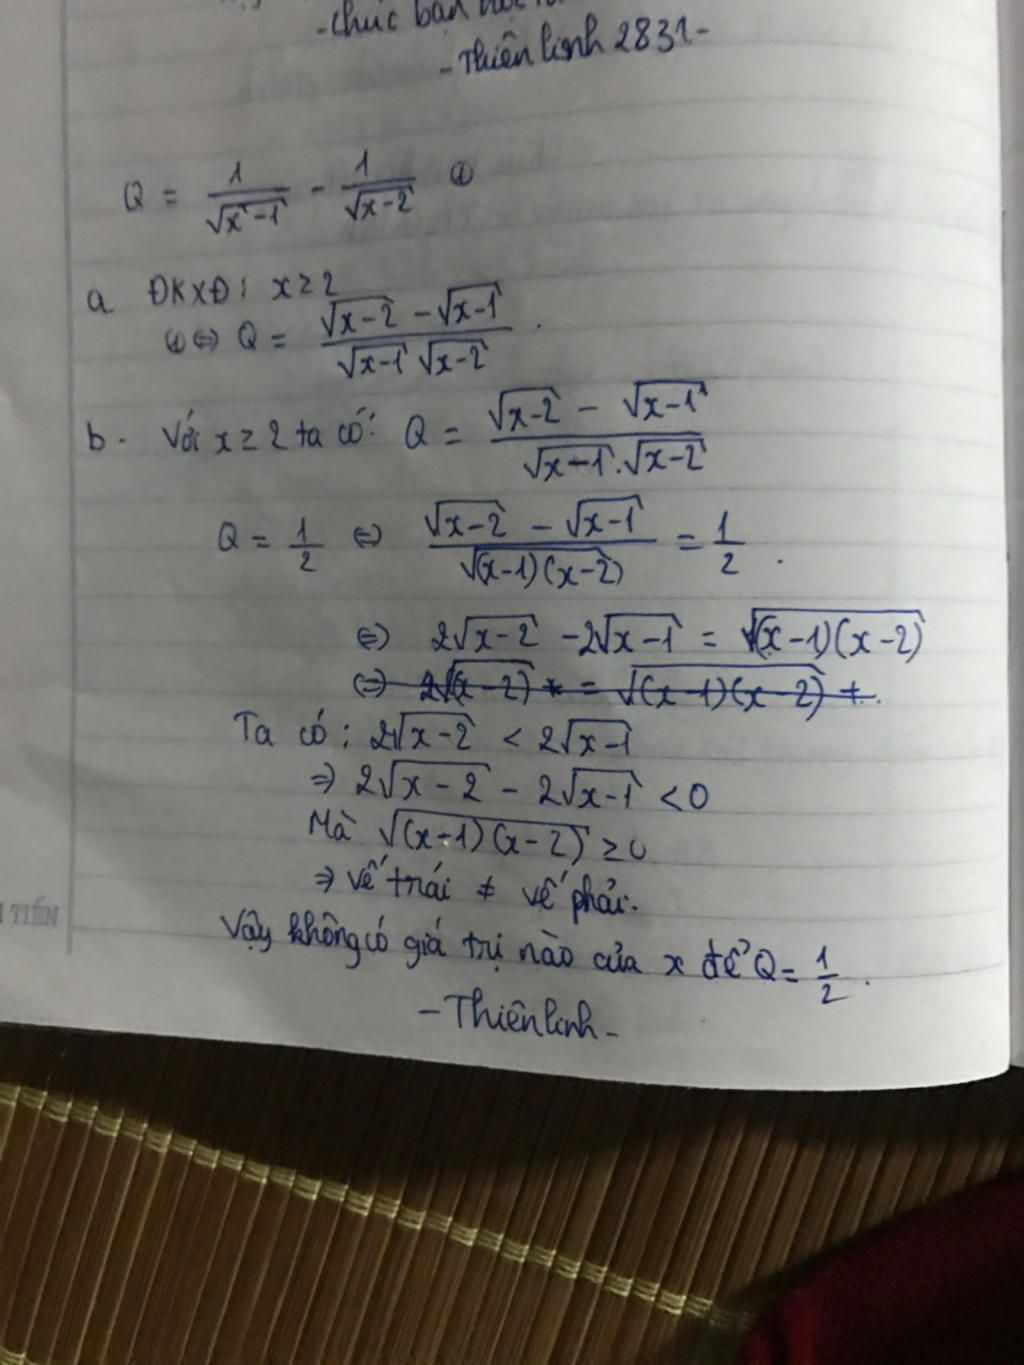 - chúc bạn
- Thiên linh 2831 -
Q = 1/√x-1 - 1/√x-2 ①
a. ĐKXĐ: x ≥ 2
① ⇔ Q = √x-2 - √x-1 / √x-1 √x-2 .
b. Với x ≥ 2 ta có: Q = √x-2 - √x-1 / √x-1 . √x-2
Q = 1/2 ⇔ √x-2 - √x-1 / √(x-1)(x-2) = 1/2 .
⇔ 2√x-2 - 2√x-1 = √(x-1)(x-2)
⇔ 2√(x-2) = √(x-1)(x-2) +
Ta có: 2√x-2 < 2√x-1
⇒ 2√x-2 - 2√x-1 < 0
Mà √(x-1)(x-2) ≥ 0
⇒ vế trái ≠ vế phải.
Vậy không có giá trị nào của x để Q = 1/2 .
- Thiên linh -
TIẾN